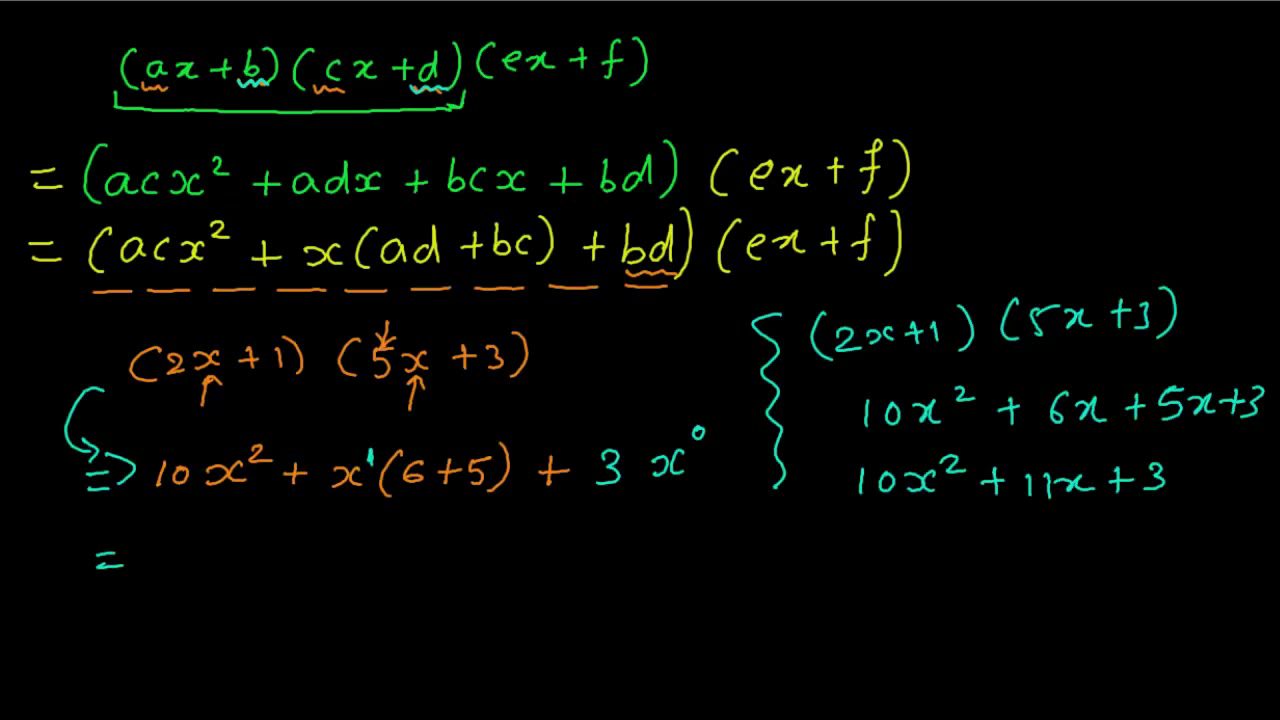 (ax + b) (cx + d) (ex + f)
= (acx² + adx + bcx + bd) (ex + f)
= (acx² + x(ad + bc) + bd) (ex + f)
(2x + 1) (5x + 3)
=> 10x² + x¹(6 + 5) + 3 x⁰
=
(2x + 1) (5x + 3)
10x² + 6x + 5x + 3
10x² + 11x + 3